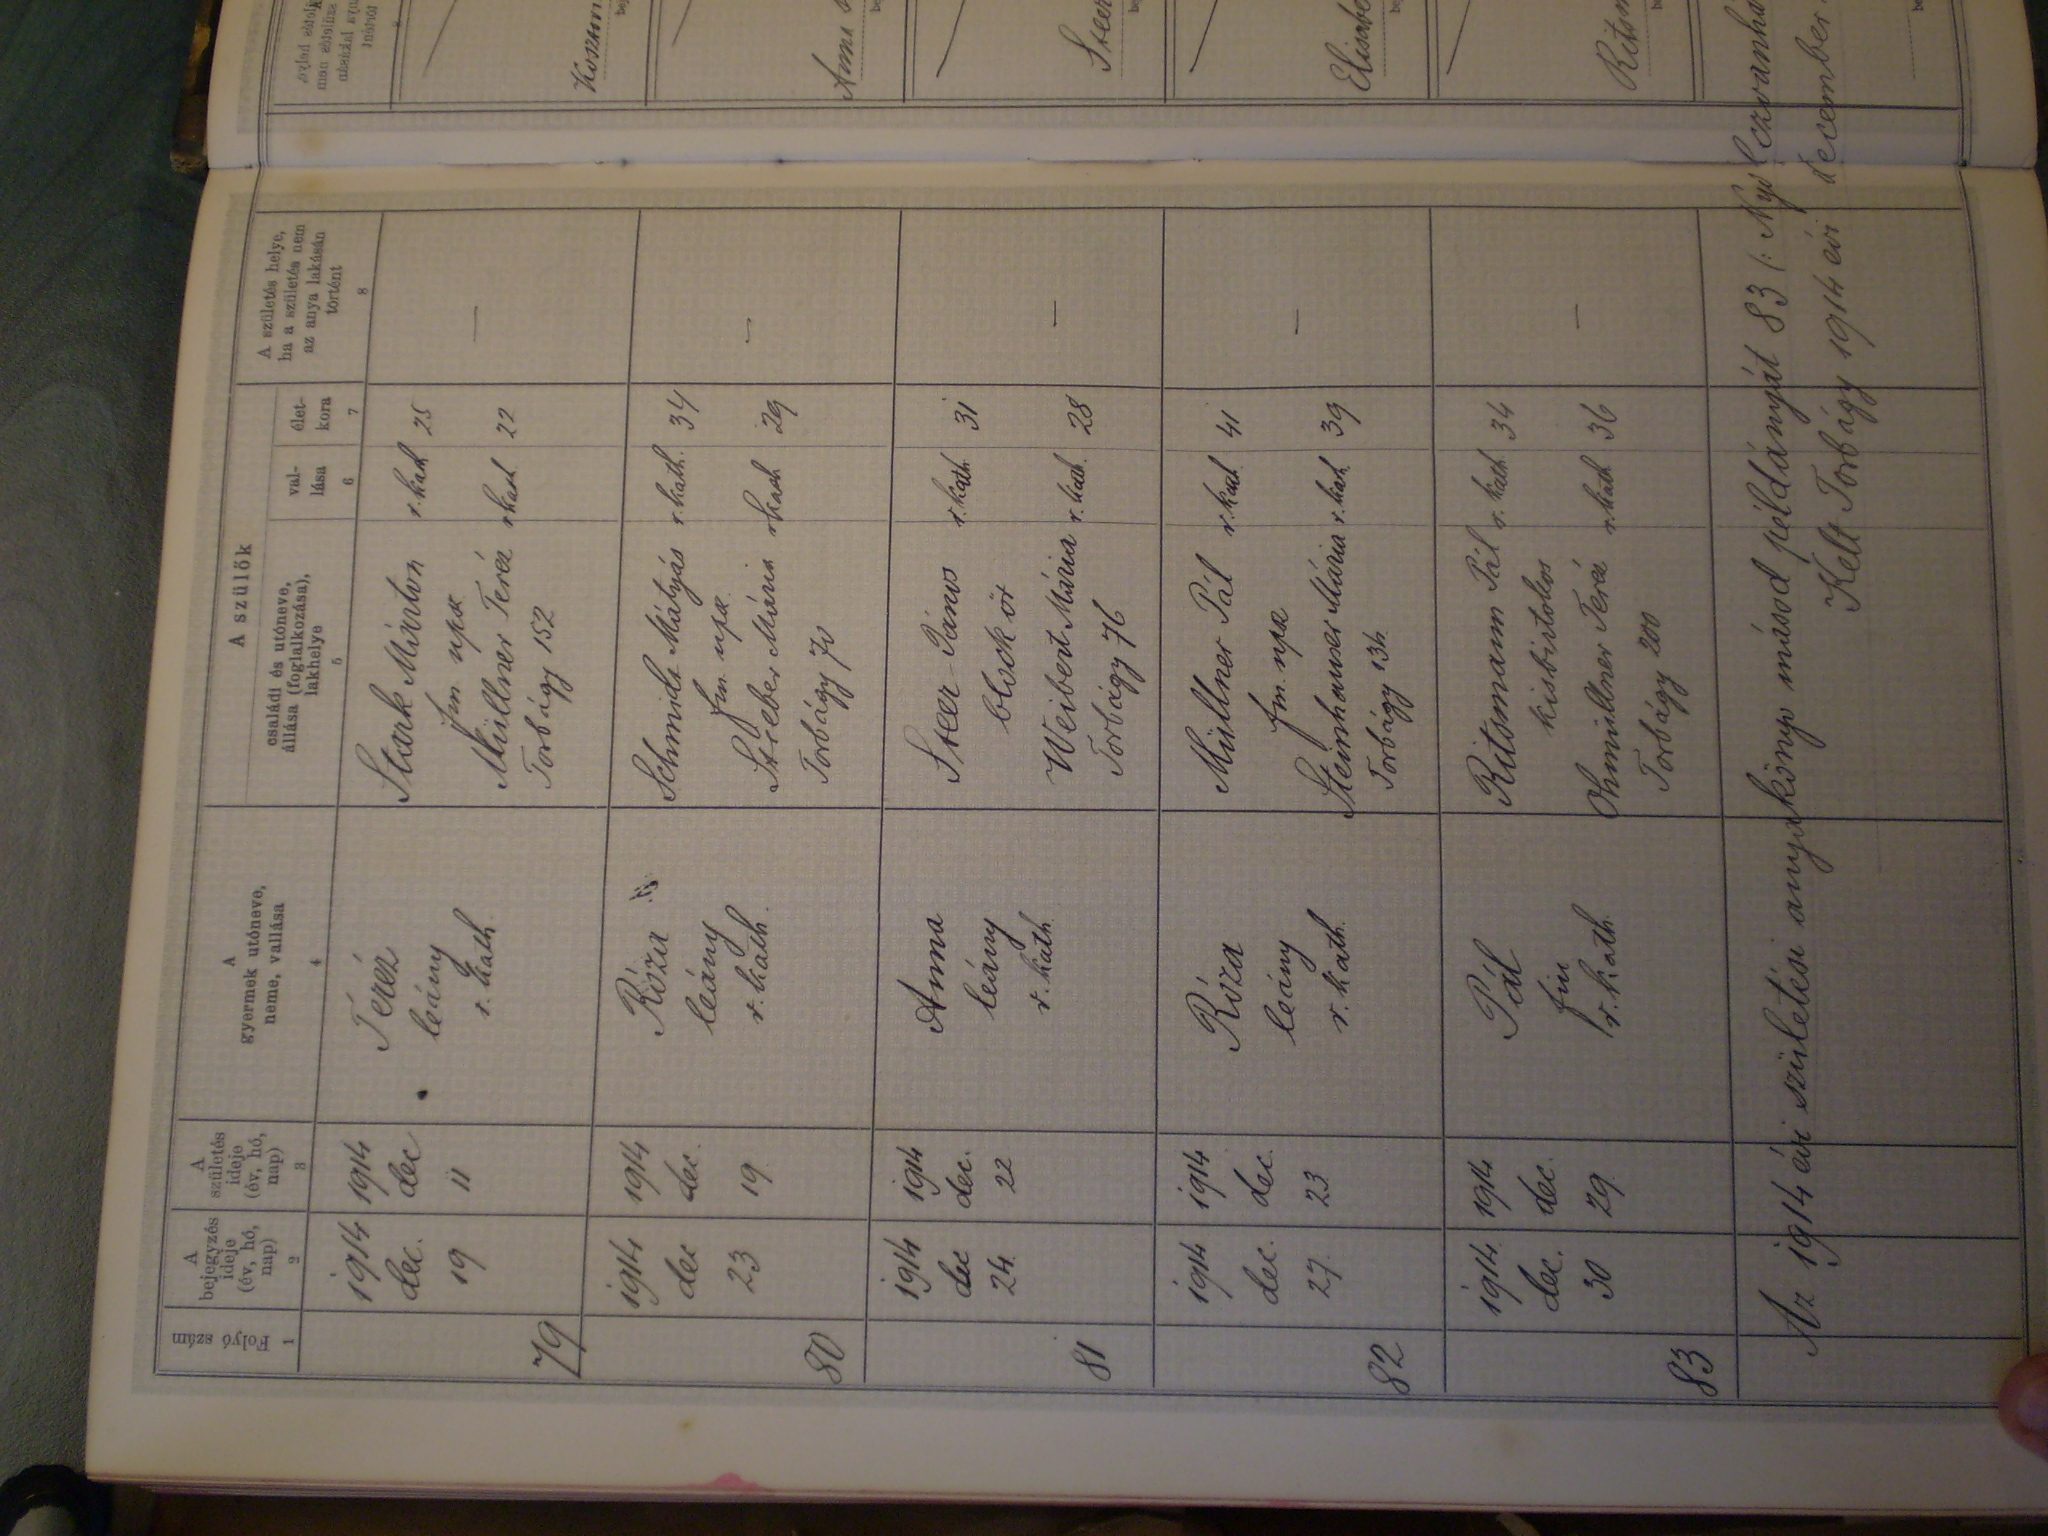 A szülők
Folyó szám
A bejegyzés ideje (év, hó, nap)
A születés ideje (év, hó, nap)
A gyermek utóneve, neme, vallása
családi és utóneve, állása (foglalkozása), lakhelye
vallása
életkora
A születés helye, ha a születés nem az anya lakásán történt
1 2 3 4 5 6 7 8
79
1914 dec. 19
1914 dec 11
Teréz
leány
r. kath.
Stark Márton r. kath 25
fm. npsz
Müllner Teréz r kath 22
Torbágy 152
—
80
1914 dec 23
1914 dec. 19
Róza
leány
r. kath.
Schmidt Mátyás r. kath. 34
fm. npsz
Streber Mária r kath 29
Torbágy 70
—
81
1914 dec 24
1914 dec. 22
Anna
leány
r. kath
Steer János r. kath 31
block őr
Weibert Mária r. kath. 28
Torbágy 76
—
82
1914 dec. 27.
1914 dec. 23
Róza
leány
r. kath.
Müllner Pál r. kath 41
fm. npsz
Steinhauser Mária r. kath 39
Torbágy
—
83
1914. dec. 30
1914 dec. 29
Pál
fiu
r. kath.
Ritsmann Pál r. kath 34
kisbirtokos
Ohmüllner Teréz r. kath 36
Torbágy 200
—
Az 1914 évi születési anyakönyv másod példányát 83 (: Nyolczvanhá
Kelt Torbágy 1914 évi december
Anna
Steer
Elisabe
Ritsm